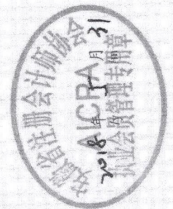 安徽省注册会计师协会
AICPA
2018年5月31
执业会员管理专用章